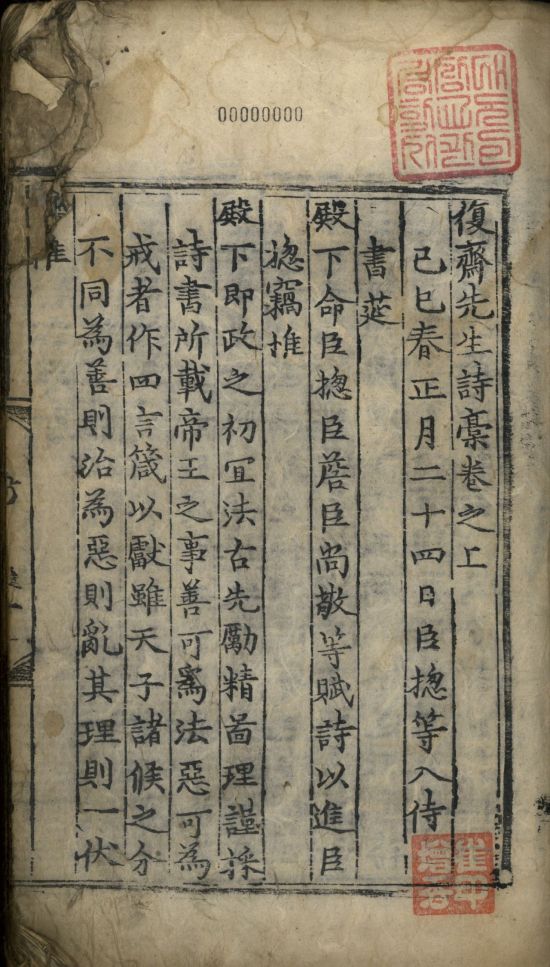 00000000
復齋先生詩藁卷之上
己巳春正月二十四日臣揔等入侍
書筵
殿下命臣揔臣蒼臣尚敬等賦詩以進臣
揔竊惟
殿下即政之初宜法古先勵精啚理謹採
詩書所載帝王之事善可為法惡可為
戒者作四言箴以獻雖天子諸侯之分
不同為善則治為惡則亂其理則一伏
惟